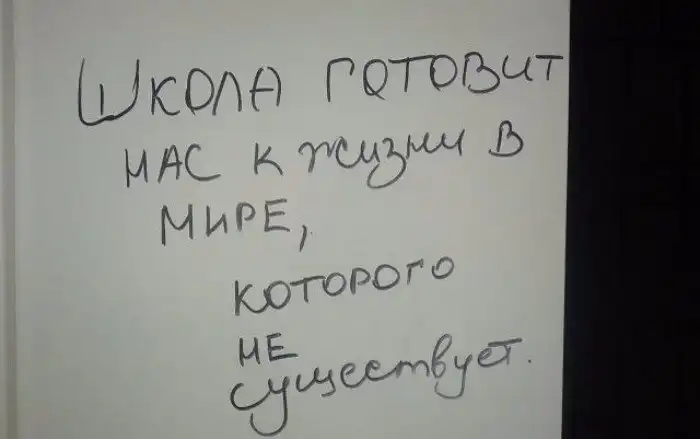 Школа готовит
нас к жизни в
мире,
которого
не
существует.